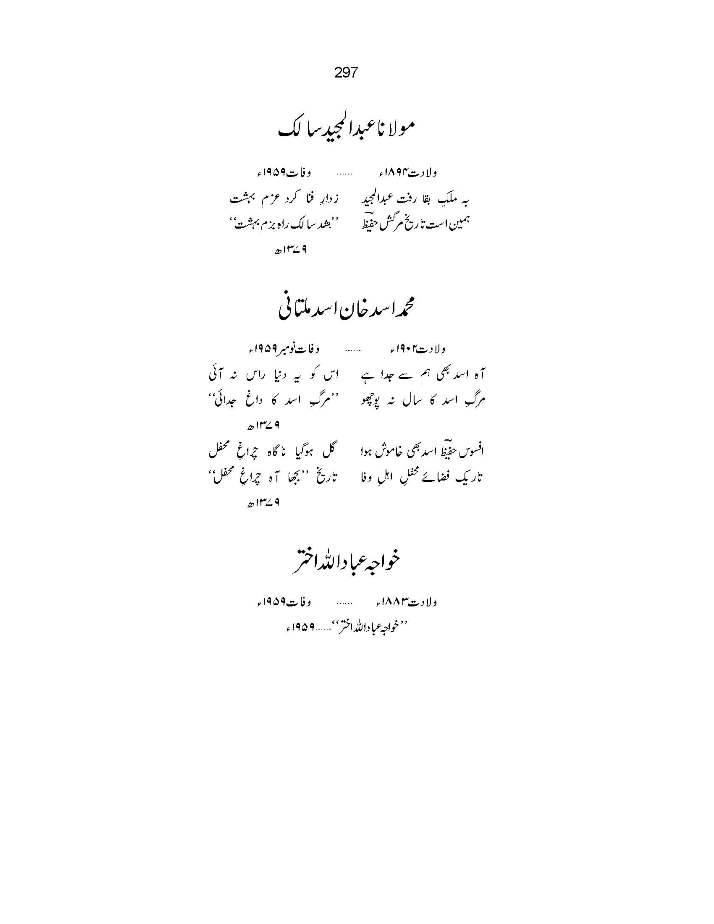 297
مولانا عبدالمجید سالک
ولادت ۱۸۹۴ء ...... وفات ۱۹۵۹ء
بہ ملکِ بقا رفت عبدالمجید زدارِ فنا کرد عزم بہشت
ہمین است تاریخ مرگش حفیظؔ ''بشد سالک راہ بزم بہشت''
۱۳۷۹ھ
محمد اسد خان اسد ملتانی
ولادت ۱۹۰۲ء ...... وفات نومبر ۱۹۵۹ء
آہ اسد بھی ہم سے جدا ہے اس کو یہ دنیا راس نہ آئی
مرگِ اسد کا سال نہ پوچھو ''مرگِ اسد کا داغ جدائی''
۱۳۷۹ھ
افسوس حفیظؔ اسد بھی خاموش ہوا گل ہوگیا ناگاہ چراغِ محفل
تاریک فضائے محفلِ اہلِ وفا تاریخ ''بجھا آہ چراغِ محفل''
۱۳۷۹ھ
خواجہ عباداللہ اختر
ولادت ۱۸۸۳ء ...... وفات ۱۹۵۹ء
''خواجہ عباداللہ اختر''......۱۹۵۹ء